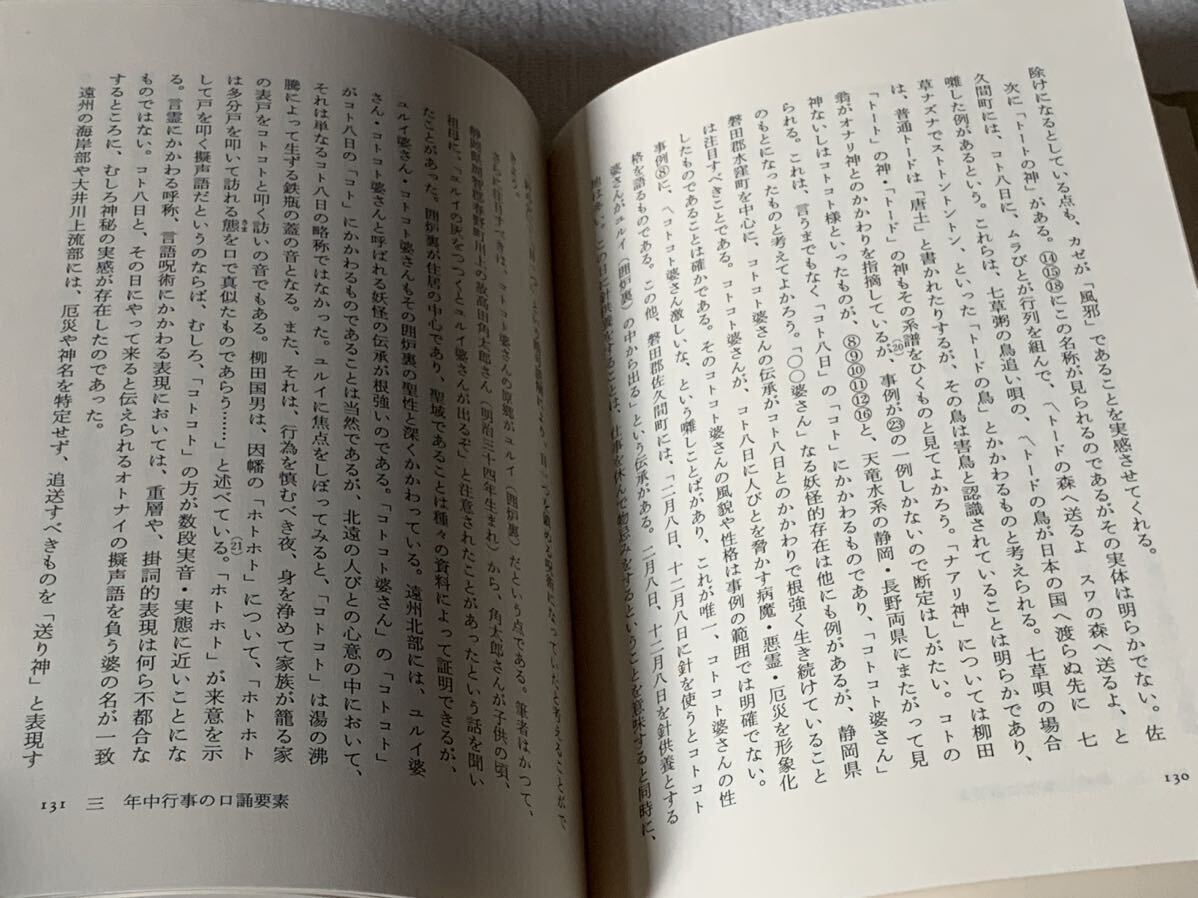 除けになるとしている点も、カゼが「風邪」であることを実感させてくれる。
次に「トートの神」がある。⑭⑮⑱にこの名称が見られるのであるがその実体は明らかでない。佐
久間町には、コト八日に、ムラびとが行列を組んで、〽トードの森へ送るよ　スワの森へ送るよ、と
囃した例があるという。これらは、七草粥の鳥追い唄の、〽トードの鳥が日本の国へ渡らぬ先に　七
草ナズナでストントントン、といった「トードの鳥」とかかわるものと考えられる。七草唄の場合
は、普通トードは「唐土」と書かれたりするが、その鳥は害鳥と認識されていることは明らかであり、
「トート」の神・「トード」の神もその系譜をひくものと見てよかろう。「ナアリ神」については柳田
翁がオナリ神とのかかわりを指摘しているが、(20)事例が㉓の一例しかないので断定はしがたい。コトの
神ないしはコトコト様といったものが、⑧⑨⑩⑪⑫⑯と、天竜水系の静岡・長野両県にまたがって見
られる。これは、言うまでもなく「コト八日」の「コト」にかかわるものであり、「コトコト婆さん」
のもとになったものと考えてよかろう。「〇〇婆さん」なる妖怪的存在は他にも例があるが、静岡県
磐田郡水窪町を中心に、コトコト婆さんの伝承がコト八日とのかかわりで根強く生き続けていること
は注目すべきことである。コトコト婆さんが、コト八日に人びとを脅かす病魔・悪霊・厄災を形象化
したものであることは確かである。そのコトコト婆さんの風貌や性格は事例の範囲では明確でない。
事例⑧に、〽コトコト婆さん激しいな、という囃しことばがあり、これが唯一、コトコト婆さんの性
格を語るものである。この他、磐田郡佐久間町には、「二月八日、十二月八日に針を使うとコトコト
婆さんがユルイ（囲炉裏）の中から出る」という伝承がある。二月八日、十二月八日を針供養とする
地は多く、この日に針供養をすることは、仕事を休んで物忌みをするということを意味すると同時に、
130
さらに注目すべきは、コトコト婆さんの原郷がユルイ（囲炉裏）だという点である。筆者はかつて、
静岡県周智郡春野町川上の故高田角太郎さん（明治三十四年生まれ）から、角太郎さんが子供の頃、
祖母に、「ユルイの灰をつつくとユルイ婆さんが出るぞ」と注意されたことがあったという話を聞い
たことがあった。囲炉裏が住居の中心であり、聖域であることは種々の資料によって証明できるが、
ユルイ婆さんもコトコト婆さんもその囲炉裏の聖性と深くかかわっている。遠州北部には、ユルイ婆
さん・コトコト婆さんと呼ばれる妖怪の伝承が根強いのである。「コトコト婆さん」の「コトコト」
がコト八日の「コト」にかかわるものであることは当然であるが、北遠の人びとの心意の中において、
それは単なるコト八日の略称ではなかった。ユルイに焦点をしぼってみると、「コトコト」は湯の沸
騰によって生ずる鉄瓶の蓋の音となる。また、それは、行為を慎むべき夜、身を浄めて家族が籠る家
の表戸をコトコトと叩く訪いの音でもある。柳田国男は、因幡の「ホトホト」について、「ホトホト
は多分戸を叩いて訪れる態（さま）を口で真似たものであらう……」と述べている。(21)「ホトホト」が来意を示
して戸を叩く擬声語だというのならば、むしろ、「コトコト」の方が数段実音・実態に近いことにな
る。言霊にかかわる呼称、言語呪術にかかわる表現においては、重層や、掛詞的表現は何ら不都合な
ものではない。コト八日と、その日にやって来ると伝えられるオトナイの擬声語を負う婆の名が一致
するところに、むしろ神秘の実感が存在したのであった。
遠州の海岸部や大井川上流部には、厄災や神名を特定せず、追送すべきものを「送り神」と表現す
131　三　年中行事の口誦要素